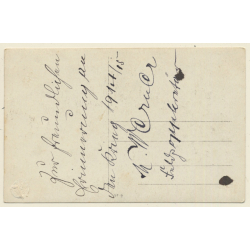 Zur freundlichen
Erinnerung an
den Krieg 1914/15
K. Werner